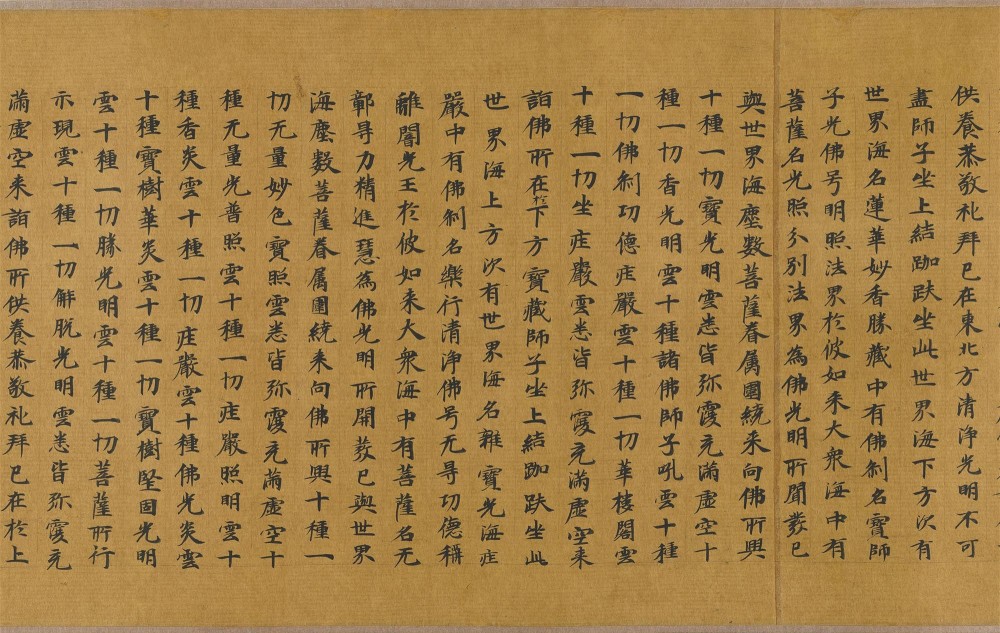 供養恭敬礼拜已在東北方清淨光明不可
盡師子坐上結跏趺坐此世界海下方次有
世界海名蓮華妙香勝藏中有佛刹名寶師
子光佛号明照法界於彼如来大衆海中有
菩薩名光照分別法界為佛光明所開發已
與世界海塵數菩薩眷属圍繞来向佛所興
十種一切寶光明雲悉皆弥覆充滿虚空十
種一切香光明雲十種諸佛師子吼雲十種
一切佛刹功德庄嚴雲十種一切華樓閣雲
十種一切坐庄嚴雲悉皆弥覆充滿虚空来
詣佛所在於下方寶藏師子坐上結跏趺坐此
世界海上方次有世界海名雜寶光海庄
嚴中有佛刹名樂行清淨佛号无㝵功德稱
離闇光王於彼如来大衆海中有菩薩名无
鄣㝵力精進慧為佛光明所開發已與世界
海塵數菩薩眷属圍繞来向佛所興十種一
切无量妙色寶照雲悉皆弥覆充滿虚空十
種无量光普照雲十種一切庄嚴照明雲十
種香炎雲十種一切庄嚴雲十種佛光炎雲
十種寶樹華炎雲十種一切寶樹堅固光明
雲十種一切勝光明雲十種一切菩薩所行
示現雲十種一切解脱光明雲悉皆弥覆充
滿虚空来詣佛所供養恭敬礼拜已在於上